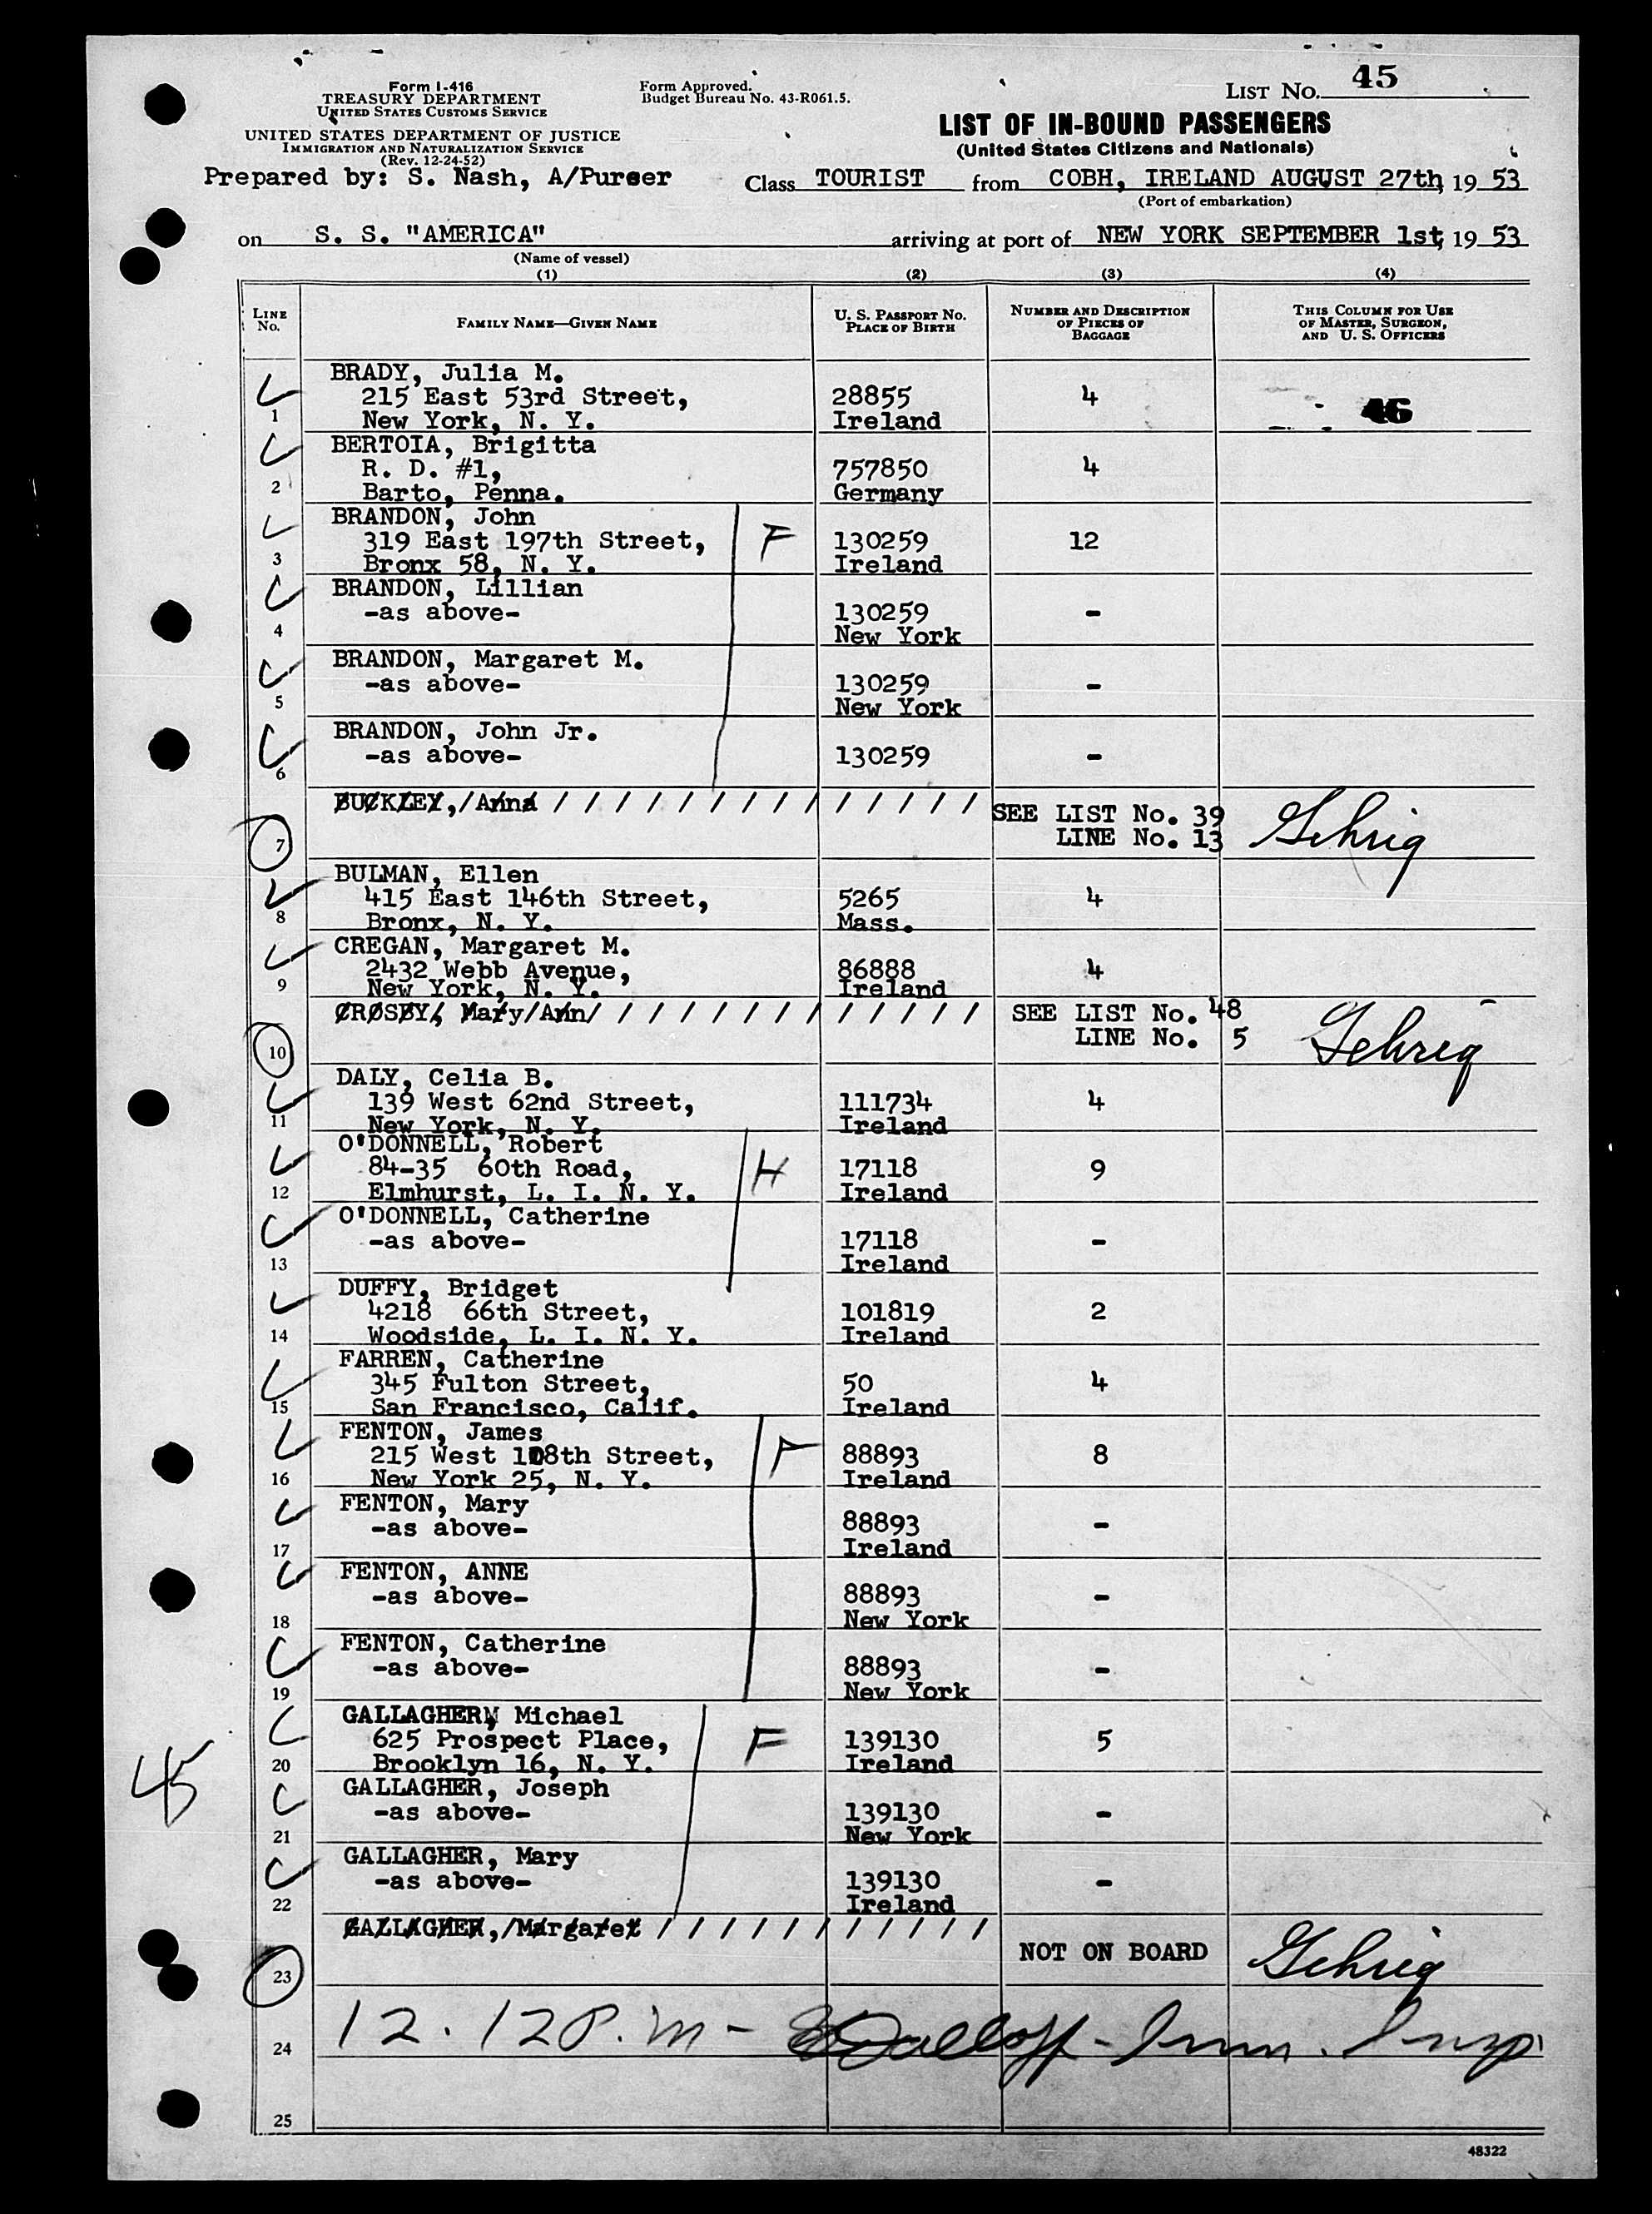 Form I-416
TREASURY DEPARTMENT
UNITED STATES CUSTOMS SERVICE
UNITED STATES DEPARTMENT OF JUSTICE
IMMIGRATION AND NATURALIZATION SERVICE
(Rev. 12-24-52)
Form Approved.
Budget Bureau No. 43-R061.5.
LIST No. 45
LIST OF IN-BOUND PASSENGERS
(United States Citizens and Nationals)
Prepared by: S. Nash, A/Purser
Class TOURIST from COBH, IRELAND AUGUST 27th, 19 53
(Port of embarkation)
on S. S. "AMERICA" arriving at port of NEW YORK SEPTEMBER 1st, 19 53
(Name of vessel)
(1) (2) (3) (4)
LINE No. FAMILY NAME—GIVEN NAME U. S. PASSPORT NO. PLACE OF BIRTH NUMBER AND DESCRIPTION OF PIECES OF BAGGAGE THIS COLUMN FOR USE OF MASTER, SURGEON, AND U. S. OFFICERS
BRADY, Julia M.
215 East 53rd Street, 28855 4 46
1 New York, N. Y. Ireland
BERTOIA, Brigitta
R. D. #1, 757850 4
2 Barto, Penna. Germany
BRANDON, John
319 East 197th Street, F 130259 12
3 Bronx 58, N. Y. Ireland
BRANDON, Lillian
-as above- 130259 -
4 New York
BRANDON, Margaret M.
-as above- 130259 -
5 New York
BRANDON, John Jr.
-as above- 130259 -
6
BUCKLEY, Anna / / / / / / / / / / / / / / / / SEE LIST No. 39
7 LINE No. 13 Gehrig
BULMAN, Ellen
415 East 146th Street, 5265 4
8 Bronx, N. Y. Mass.
CREGAN, Margaret M.
2432 Webb Avenue, 86888 4
9 New York, N. Y. Ireland
CROSBY, Mary Ann / / / / / / / / / / / / / / SEE LIST No. 48
10 LINE No. 5 Gehrig
DALY, Celia B.
139 West 62nd Street, 111734 4
11 New York, N. Y. Ireland
O'DONNELL, Robert
84-35 60th Road, H 17118 9
12 Elmhurst, L. I. N. Y. Ireland
O'DONNELL, Catherine
-as above- 17118 -
13 Ireland
DUFFY, Bridget
4218 66th Street, 101819 2
14 Woodside, L. I. N. Y. Ireland
FARREN, Catherine
345 Fulton Street, 50 4
15 San Francisco, Calif. Ireland
FENTON, James
215 West 108th Street, F 88893 8
16 New York 25, N. Y. Ireland
FENTON, Mary
-as above- 88893 -
17 Ireland
FENTON, ANNE
-as above- 88893 -
18 New York
FENTON, Catherine
-as above- 88893 -
19 New York
GALLAGHER, Michael
625 Prospect Place, F 139130 5
20 Brooklyn 16, N. Y. Ireland
45
GALLAGHER, Joseph
-as above- 139130 -
21 New York
GALLAGHER, Mary
-as above- 139130 -
22 Ireland
GALLAGHER, Margaret / / / / / / / / / / / /
23 NOT ON BOARD Gehrig
24 12.12 P.M - - Imm. Insp
25
48322